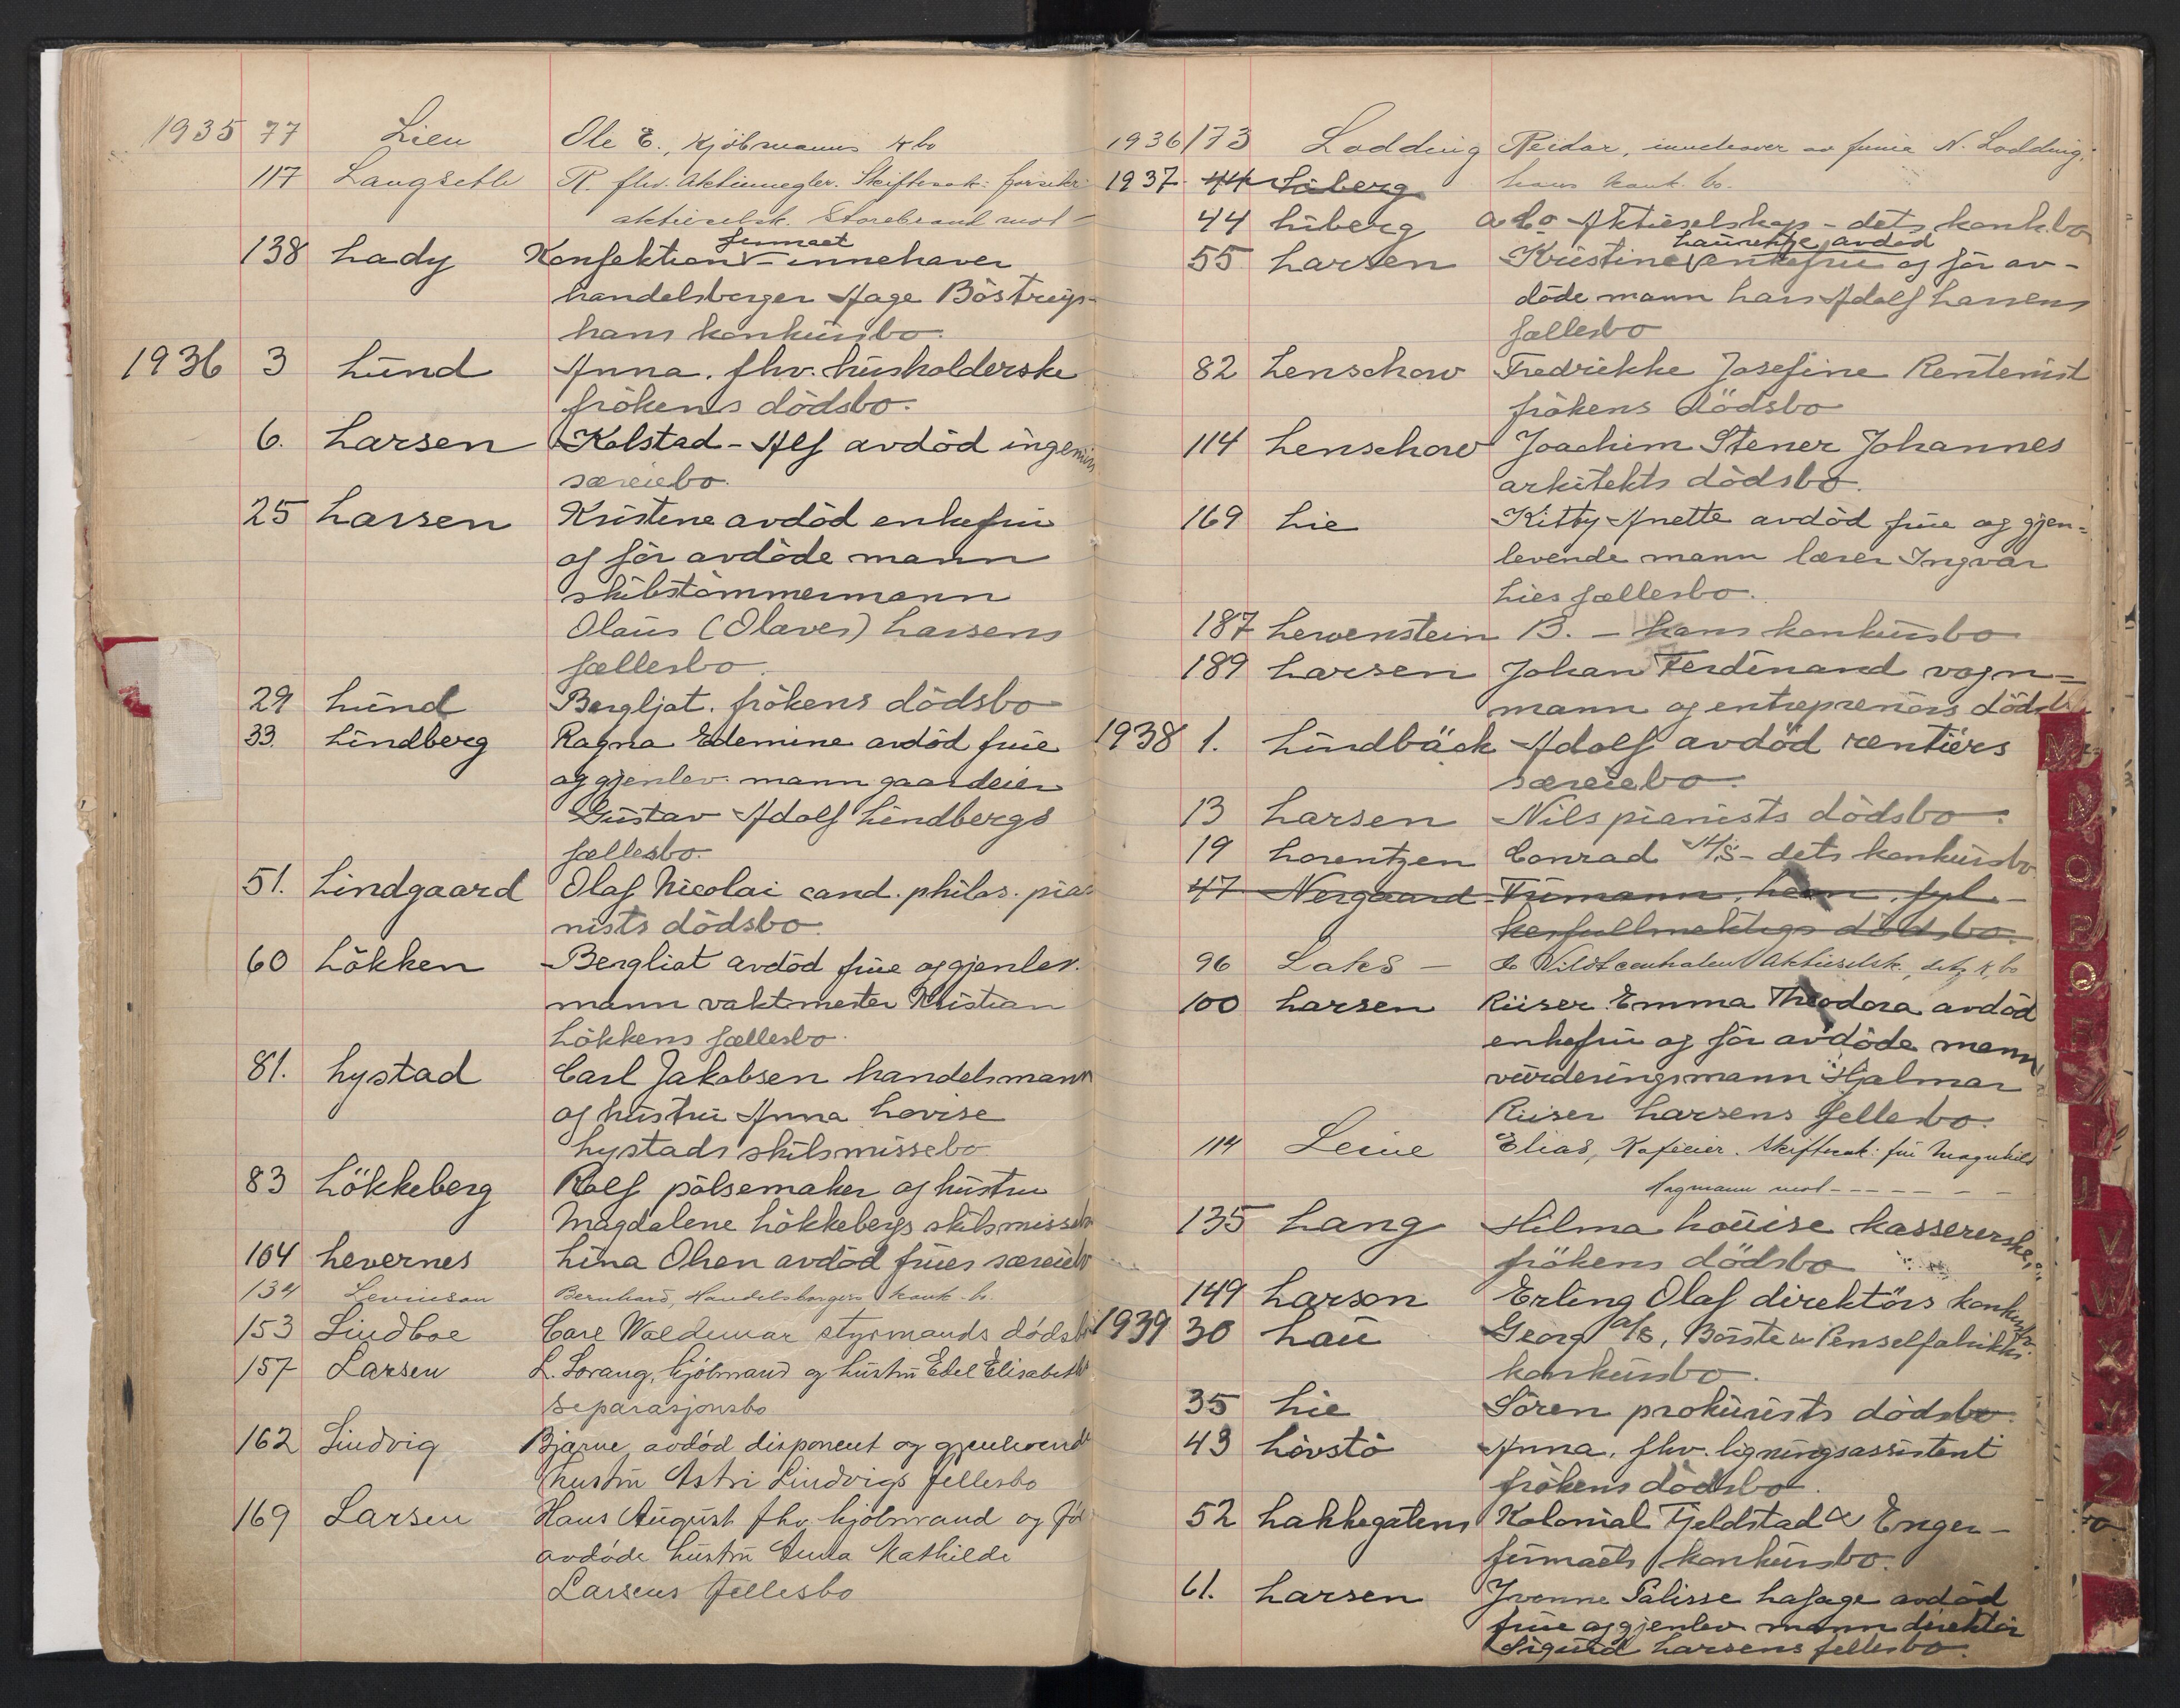 1935 77 Lien Ole E., Kjöbmanns k bo
117 Langseth R. fhv. Aktiemegler. Skiftesak: forsikr.
aktieselsk. Storebrand mot –
138 Lady Konfektion firmaet – innehaver
handelsborger Aage Böstrups
hans konkursbo.
1936 3 Lund Anna. fhv. husholderske
frökens dödsbo.
6. Larsen Kolstad – Alf avdöd ingeniörs
særeiebo.
25 Larsen Kristine avdöd enkefru
og för avdöde mann
skibstömmermann
Olaus (Olaves) Larsens
fællesbo.
29 Lund Bergljot. frökens dödsbo
33. Lindberg Ragna Edemine avdöd frue
og gjenlev. mann gaardeier
Gustav Adolf Lindbergs
fællesbo.
51. Lindgaard Olaf Nicolai cand. philos. pia-
nists dödsbo.
60 Lökken Bergliot avdöd frue og gjenlev.
mann vaktmester Kristian
Lökkens fællesbo.
81. Lystad Carl Jakobsen handelsmann
og hustru Anna Lovise
Lystads skilsmissebo
83 Lökkeberg Rolf pölsemaker og hustru
Magdalene Lökkebergs skilsmissebo
104 Levernes Lina Olsen avdöd frues særeiebo
134 Levinson Bernhard, Handelsborgers konk. bo.
153 Lindboe Carl Waldemar styrmands dödsbo
157 Larsen L. Sorang, kjöbmand og hustru Edel Elisabeth
separasjonsbo
162 Lindvig Bjarne avdöd disponent og gjenlevende
hustru Astri Lindvigs fellesbo
169 Larsen Hans August fhv. kjöbmand og för
avdöde hustru Anna Mathilde
Larsens fellesbo
1936/173 Lodding Reidar, innehaver av firma N. Lodding.
1937. 44 Liberg hans konk. bo.
44 Liberg & Co Aktieselskap – dets konk.bo
55 Larsen Kristine Laurentze, avdöd enkefru og för av-
döde mann Lars Adolf Larsens
fællesbo
82 Lenschow Fredrikke Josefine Rentenist
frökens dödsbo
114 Lenschow Joachim Stener Johannes
arkitekts dödsbo.
169 Lie Kitty Anette avdöd frue og gjen-
levende mann lærer Ingvar
Lies fællesbo.
187 Lewenstein B. – hans konkursbo
189 Larsen Johan Ferdinand vogn-
mann og entreprenörs dödsbo
1938 1. Lindbäck Adolf avdöd rentiers
særeiebo.
13 Larsen Nils pianists dödsbo.
19 Lorentzen Conrad A/S – dets konkursbo.
47 Nergaard
96 Laks – & Vildtcentralen Aktieselsk., dets k. bo
100 Larsen Riiser Emma Theodora avdöd
enkefru og för avdöde mann
vurderingsmann Hjalmar
Riiser Larsens fellesbo.
114 Leine Elias, Kafeeier. Skiftesak: fru Magnhild
Hagmann mot – – – – – –
135 Lang Hilma Louise kassererske,
frökens dödsbo
149 Larson Erling Olaf direktörs konkursbo.
1939 30 Lau Georg A/S, Börste & Penselfabrikks
konkursbo.
35 Lie Sören prokurists dödsbo.
43 Lövstö Anna. fhv. ligningsassistent
frökens dödsbo.
52 Lakkegatens Kolonial Fjeldstad & Enger –
firmaets konkursbo.
61. Larsen Yvonne Palisse Lafage avdöd
frue og gjenlev. mann direktör
Sigurd Larsens fellesbo.
M
N
O
P
Q
R
S
T
U
V
W
X
Y
Z